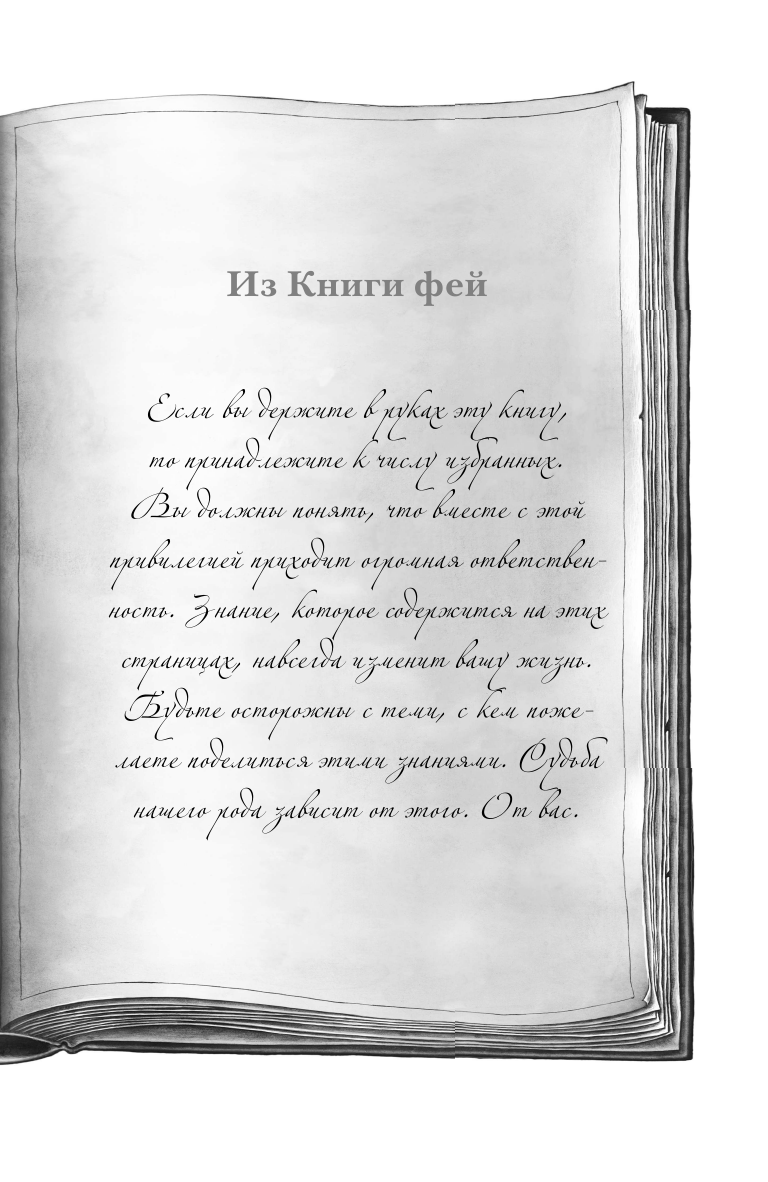 Из Книги фей
Если вы держите в руках эту книгу,
то принадлежите к числу избранных.
Вы должны понять, что вместе с этой
привилегией приходит огромная ответствен-
ность. Знание, которое содержится на этих
страницах, навсегда изменит вашу жизнь.
Будьте осторожны с теми, с кем поже-
лаете поделиться этими знаниями. Судьба
нашего рода зависит от этого. От вас.